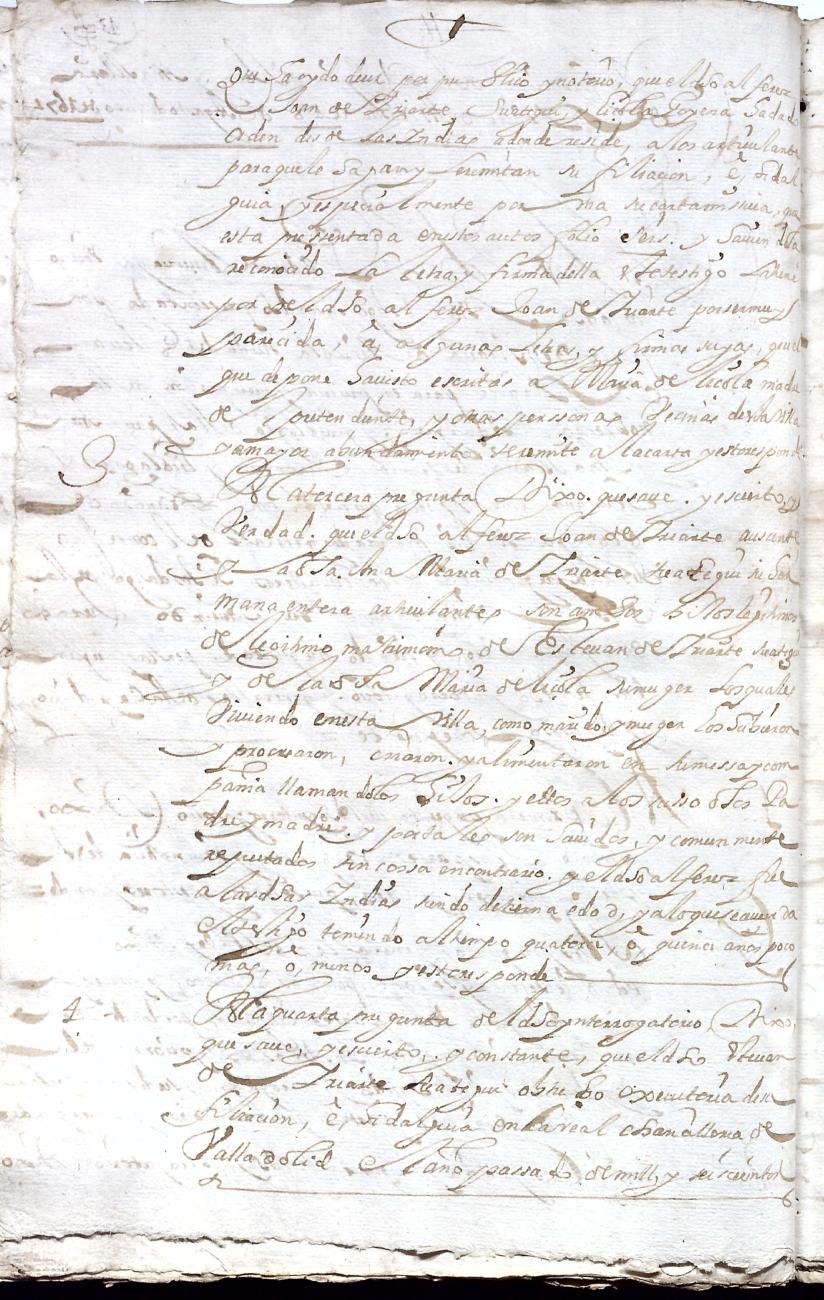 que ha oydo decir per pu blico y notorio, que el dho alferez
Joan de Yriarte, y licola Goyena ha dado
orden desde las Indias adonde reside, a los articulantes
para que le hagan y Remitan su filiacion, è, hidal
guia, y espeçialmente por una su carta missiva, que
esta pressentada en estos autos folio seis. y haviendola
reconocido la letra, y firma della este testigo la tiene
por del dho alferez Joan de Yriarte por ser muy
parecida, à, algunas letras, y firmas suyas, que el
que depone ha visto escritas a Maria de licola madre
de Pretendiente, y otras perssonas Vecinas de esta Villa
y a mayor abundamiento se remite a la carta y esto responde
3 A la tercera pregunta Dixo. que save. y es cierto, y
Verdad. que el dho alferez Joan de Yriarte aussente
y la dha. Ana Maria de Yriarte su her
mana entera articulantes son ambos hijos legitimos
de legitimo matrimonio de Estevan de Yriarte
y de la dha Maria de licola su muger los quales
Viviendo en esta Villa, como marido, y muger los hubieron
y procrearon, criaron. y alimentaron en su messa y com
pañia llamandolos hijos. y ellos a los susso dhos Pa
dre y madre. y por tales son havidos, y comunmente
reputados sin cossa en contrario. y el dho alferez fue
a las dhas Indias siendo de tierna edad, y a lo que se acuerda
el testigo teniendo al tiempo quatorce, ò, quince años poco
mas, ò, menos y esto responde
4 A la quarta pregunta del dho ynterrogatorio Dixo,
que save, y es cierto, y constante, que el dho Estevan
de Yriarte obtubo executoria de su
filiacion, è, hidalguia en la real chancilleria de
Valladolid el año passado de mill, y seiscientos